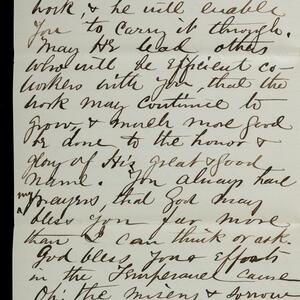 work, & he will enable
you to carry it through.
May He lead others
who will be efficient co-
workers with you, that the
work may continue to
grow, & much more good
be done to the honor &
glory of His great & good
name. You always have
my prayers, that God may
bless you far more
than I can think or ask.
God bless your efforts
in the Temperance cause
Oh! the misery & sorrow